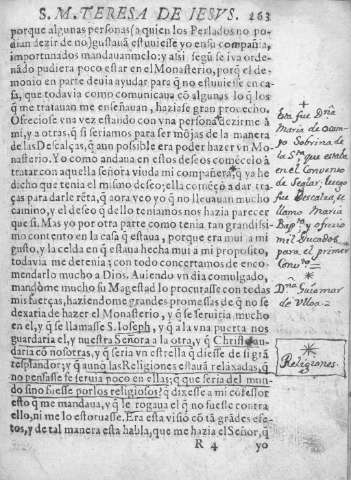 S. M. TERESA DE JESVS. 263
porque algunas personas (a quien los Perlados no po-
dian dezir de no) gustauã estuuiesse yo en su cõpañia,
importunados mandauanmelo: y assi segũ se iva orde-
nãdo pudiera poco estar en el Monasterio, porq̃ el de-
monio en parte deuia ayudar para q̃ no estuuiesse en ca-
sa, que todavia como comunicaua cõ algunas lo q̃ los
que me tratauan me enseñauan, haziase gran prouecho.
Ofreciose vna vez estando con vna persona dezirme â
mi, y a otras, q̃ si seriamos para ser mõjas de la manera
de las Descalças, q̃ aun possible era poder hazer vn Mo-
nasterio. Yo como andaua en estos deseos comécelo â
tratar con aquella señora viuda mi compañera, q̃ ya he
dicho que tenia el mismo deseo; ella comẽçò a dar tra-
ças para darle rẽta, q̃ aora veo yo q̃ no lleuauan mucho
camino, y el deseo q̃ dello teniamos nos hazia parecer
que si. Mas yo por otra parte como tenia tan grandissi-
mo contento en la casa q̃ estaua, porque era mui a mi
gusto, y la celda en q̃ estaua hecha mui a mi proposito,
todavia me detenia; con todo concertamos de encó-
mendarlo mucho a Dios. Auiendo vn dia comulgado,
mandòme mucho su Magestad lo procurasse con todas
mis fuerças, haziendome grandes promessas de q̃ no se
dexaria de hazer el Monasterio, y q̃ se seruiria mucho
en el, y q̃ se llamasse S. Ioseph, y q̃ a la vna puerta nos
guardaria el, y nuestra Señora a la otra, y q̃ Christo an-
daria cõ nosotras, y q̃ seria vn estrella q̃ diesse de si grã
resplandor; y q̃ aunq̃ las Religiones estauã relaxadas, q̃
no pensasse se seruia poco en ellas; q̃ que seria del mun-
do sino fuesse por los religiosos? q̃ dixesse a mi cõfessor
esto q̃ me mandaua, y q̃ le rogaua el q̃ no fuesse contra
ello, ni me lo estoruasse. Era esta visiõ cõ tã grãdes efe-
tos, y de tal manera esta habla, que me hazia el Señor, q̃
R 4 yo
Esta fue Dña
Maria de ocam-
po Sobrina de
la Sta que estaba
en el Convento
de seglar; luego
fue Descalza, se
llamo Maria
Bapta y ofrecio
mil Ducados
para el primer
Convto
Dña Guiomar
de Ulloa
Religiones